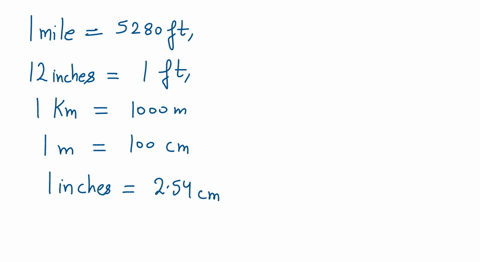 1 mile = 5280 ft,
12 inches = 1 ft,
1 Km = 1000 m
1 m = 100 cm
1 inches = 2.54 cm